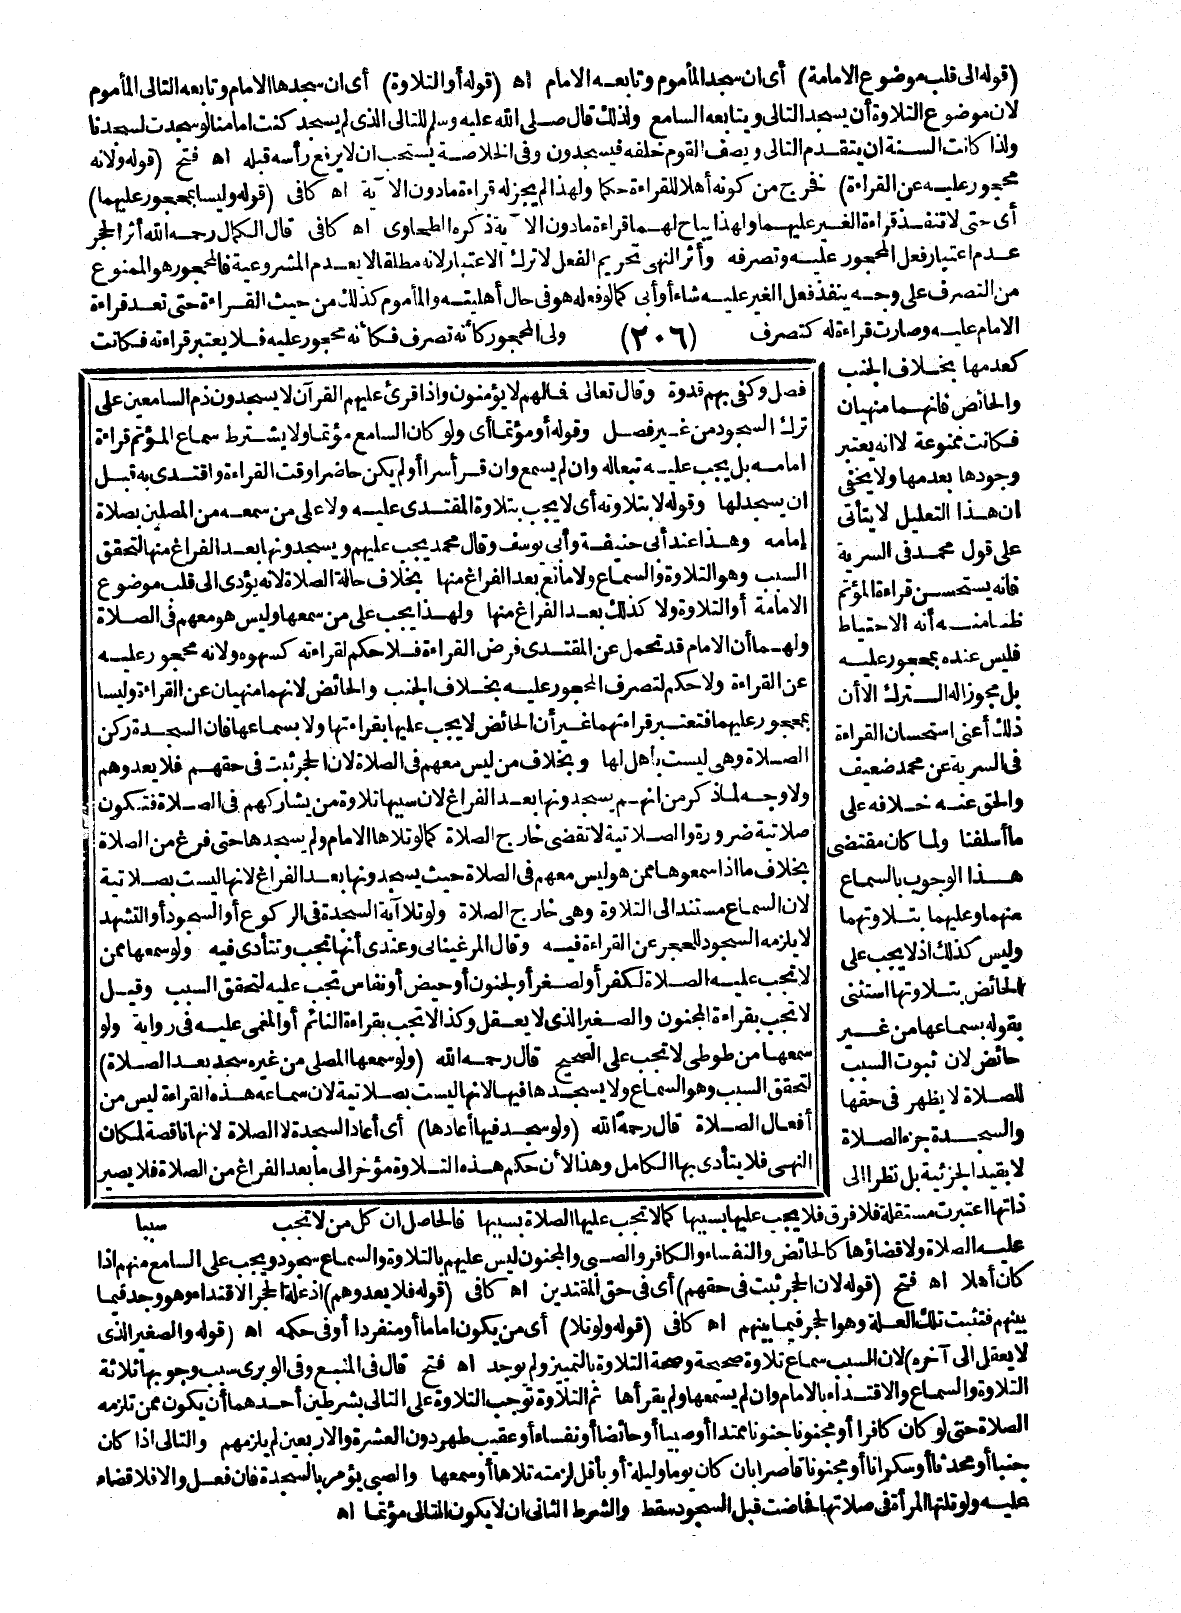 (قوله الى قلب موضوع الامامة) أى ان سجد المأموم وتابعه الامام اه (قوله أو التلاوة) أى ان سجدها الامام وتابعه التالى المأموم
لان موضوع التلاوة أن يسجد التالى ويتابعه السامع ولذلك قال صلى الله عليه وسلم للتالى الذى لم يسجد كنت امامنا لو سجدت لسجدنا
ولذا كانت السنة ان يتقدم التالى ويصف القوم خلفه فيسجدون وفى الخلاصة يستحب ان لا يرفع رأسه قبله اه فتح (قوله ولانه
محجور عليه عن القراءة) فخرج من كونه أهلا للقراءة حكما ولهذا لم يجز له قراءة مادون الآية اه كافى (قوله وليسا بمحجور عليهما)
أى حتى لا تنفذ قراءة الغير عليهما ولهذا يباح لهما قراءة مادون الآية ذكره الطحاوى اه كافى قال الكمال رحمه الله أثر الحجر
عدم اعتبار فعل المحجور عليه وتصرفه وأثر النهى تحريم الفعل لا ترك الاعتبار لانه مطلقا لا يعدم المشروعية فالمحجور هو الممنوع
من التصرف على وجه ينفذ فعل الغير عليه شاء أو أبى كما لو فعله هو فى حال أهليته والمأموم كذلك من حيث القراءة حتى تعد قراءة
الامام عليه وصارت قراءة له كتصرف (٢٠٦) ولى المحجور كأنه تصرف فكأنه محجور عليه فلا يعتبر قراءته فكانت
كعدمها بخلاف الجنب
والحائض فانهما منهيان
فكانت ممنوعة لا انه يعتبر
وجودها بعدمها ولا يخفى
ان هذا التعليل لا يتأتى
على قول محمد فى السرية
فانه يستحسن قراءة المؤتم
ظنا منه أنه الاحتياط
فليس عنده بمحجور عليه
بل مجوز اله الترك الا أن
ذلك أعنى استحسان القراءة
فى السرية عن محمد ضعيف
والحق عنه خلافه على
ما أسلفنا ولما كان مقتضى
هذا الوجوب بالسماع
منهما وعليهما بتلاوتهما
وليس كذلك اذ لا يجب على
الحائض بتلاوتها استثنى
بقوله بسماعها من غير
حائض لان ثبوت السبب
للصلاة لا يظهر فى حقها
والسجدة جزء الصلاة
لا بقيد الجزئية بل نظرا الى
فصل وكفى بهم قدوة وقال تعالى فمالهم لا يؤمنون واذا قرئ عليهم القرآن لا يسجدون ذم السامعين على
ترك السجود من غير فصل وقوله أو مؤتما أى ولو كان السامع مؤتما ولا يشترط سماع المؤتم قراءة
امامه بل يجب عليه تبعا له وان لم يسمع وان قرأ سرا أو لم يكن حاضرا وقت القراءة واقتدى به قبل
ان يسجد لها وقوله لا بتلاوته أى لا يجب بتلاوة المقتدى عليه ولا على من سمعه من المصلين بصلاة
إمامه وهذا عند أبى حنيفة وأبى يوسف وقال محمد يجب عليهم ويسجدونها بعد الفراغ منها لتحقق
السبب وهو التلاوة والسماع ولا مانع بعد الفراغ منها بخلاف حالة الصلاة لانه يؤدى الى قلب موضوع
الامامة أو التلاوة ولا كذلك بعد الفراغ منها ولهذا يجب على من سمعها وليس هو معهم فى الصلاة
ولهما أن الامام قد تحمل عن المقتدى فرض القراءة فلا حكم لقراءته كسهوه ولانه محجور عليه
عن القراءة ولا حكم لتصرف المحجور عليه بخلاف الجنب والحائض لانهما منهيان عن القراءة وليسا
بمحجور عليهما فتعتبر قراءتهما غير أن الحائض لا يجب عليها بقراءتها ولا بسماعها فان السجدة ركن
الصلاة وهى ليست بأهل لها وبخلاف من ليس معهم فى الصلاة لان الحجر ثبت فى حقهم فلا يعدوهم
ولا وجه لما ذكر من انهم يسجدونها بعد الفراغ لان سببها تلاوة من يشاركهم فى الصلاة فتكون
صلاتية ضرورة والصلاتية لا تقضى خارج الصلاة كما لو تلاها الامام ولم يسجدها حتى فرغ من الصلاة
بخلاف ما اذا سمعوها ممن هو ليس معهم فى الصلاة حيث يسجدونها بعد الفراغ لانها ليست بصلاتية
لان السماع مستند الى التلاوة وهى خارج الصلاة ولو تلا آية السجدة فى الركوع أو السجود أو التشهد
لا يلزمه السجود للحجر عن القراءة فيه وقال المرغينانى وعندى أنها تجب وتتأدى فيه ولو سمعها ممن
لا تجب عليه الصلاة لكفر أو لصغر أو لجنون أو حيض أو نفاس تجب عليه لتحقق السبب وقيل
لا تجب بقراءة المجنون والصغير الذى لا يعقل وكذا لا تجب بقراءة النائم أو المغمى عليه فى رواية ولو
سمعها من طوطى لا تجب على الصحيح قال رحمه الله (ولو سمعها المصلى من غيره سجد بعد الصلاة)
لتحقق السبب وهو السماع ولا يسجدها فيها لانها ليست بصلاتية لان سماعه هذه القراءة ليس من
أفعال الصلاة قال رحمه الله (ولو سجد فيها أعادها) أى أعاد السجدة لا الصلاة لانها ناقصة لمكان
النهى فلا يتأدى بها الكامل وهذا لأن حكم هذه التلاوة مؤخر الى ما بعد الفراغ من الصلاة فلا يصير
ذاتها اعتبرت مستقلة فلا فرق فلا يجب عليها بسببها كما لا تجب عليها الصلاة بسببها فالحاصل ان كل من لا تجب سببا
عليه الصلاة ولا قضاؤها كالحائض والنفساء والكافر والصبى والمجنون ليس عليهم بالتلاوة والسماع سجود ويجب على السامع منهم اذا
كان أهلا اه فتح (قوله لان الحجر ثبت فى حقهم) أى فى حق المقتدين اه كافى (قوله فلا يعدوهم) اذ علة الحجر الاقتداء وهو وجد فيما
بينهم فتثبت تلك العلة وهو الحجر فيما بينهم اه كافى (قوله ولو تلا) أى من يكون اماما أو منفردا أو فى حكمه اه (قوله والصغير الذى
لا يعقل الى آخره) لان السبب سماع تلاوة صحيحة وصحة التلاوة بالتمييز ولم يوجد اه فتح قال فى المنبع وفى الوبرى سبب وجوبها ثلاثة
التلاوة والسماع والاقتداء بالامام وان لم يستمعها ولم يقرأها ثم التلاوة توجب التلاوة على التالى بشرطين أحدهما أن يكون ممن تلزمه
الصلاة حتى لو كان كافرا أو مجنونا جنونا ممتدا أو صبيا أو حائضا أو نفساء أو عقيب طهر دون العشرة والاربعين لم يلزمهم والتالى اذا كان
جنبا أو محدثا أو سكرانا أو مجنونا قاصرا بان كان يوما وليلة أو بأقل لزمته تلاها أو سمعها والصبى يؤمر بالسجدة فان فعل والا فلا قضاء
عليه ولو تلتها المرأة فى صلاتها فحاضت قبل السجود سقط والشرط الثانى ان لا يكون التالى مؤتما اه